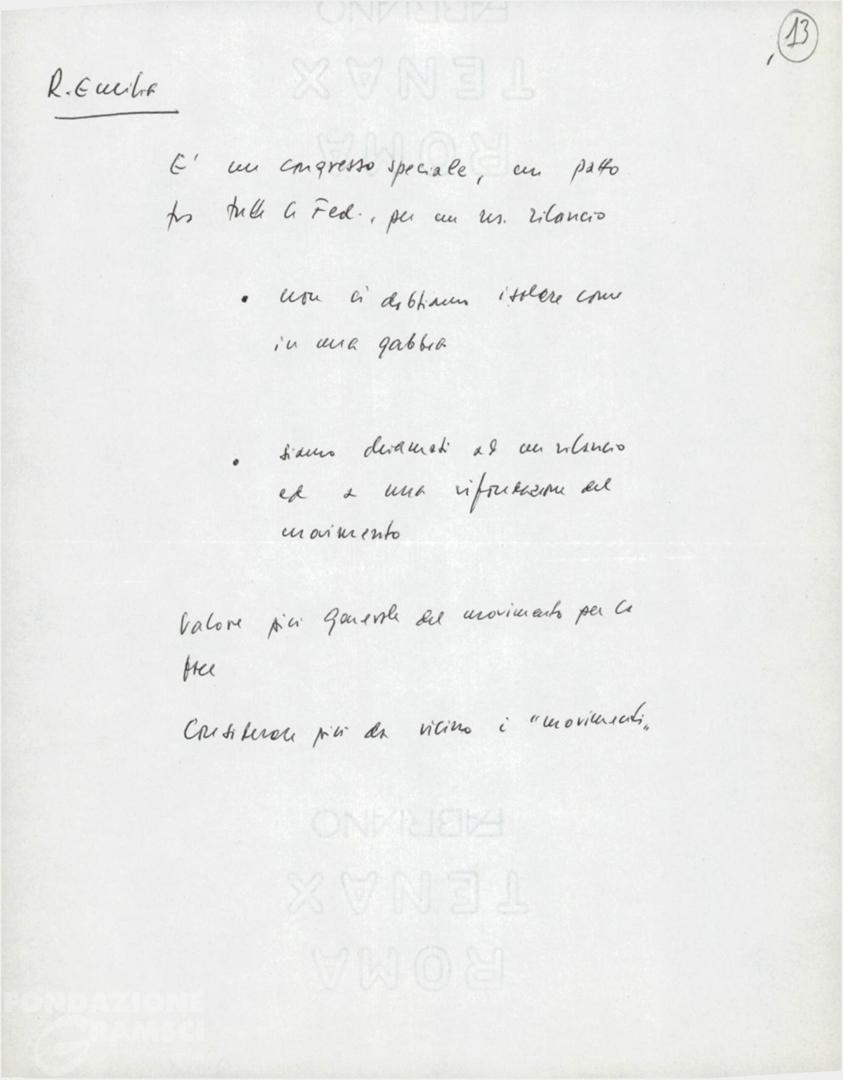 13
R. Emilia
E' un congresso speciale, un patto
tra tutte le Fed., per un rilancio
• non ci dobbiamo isolare come
in una gabbia
• siamo chiamati ad un rilancio
ed a una rifondazione del
movimento
Valore più generale del movimento per la
pace
Considerare più da vicino i "movimenti"
FABRIANO
TENAX
ROMA
FABRIANO
TENAX
ROMA
FONDAZIONE
GRAMSCI